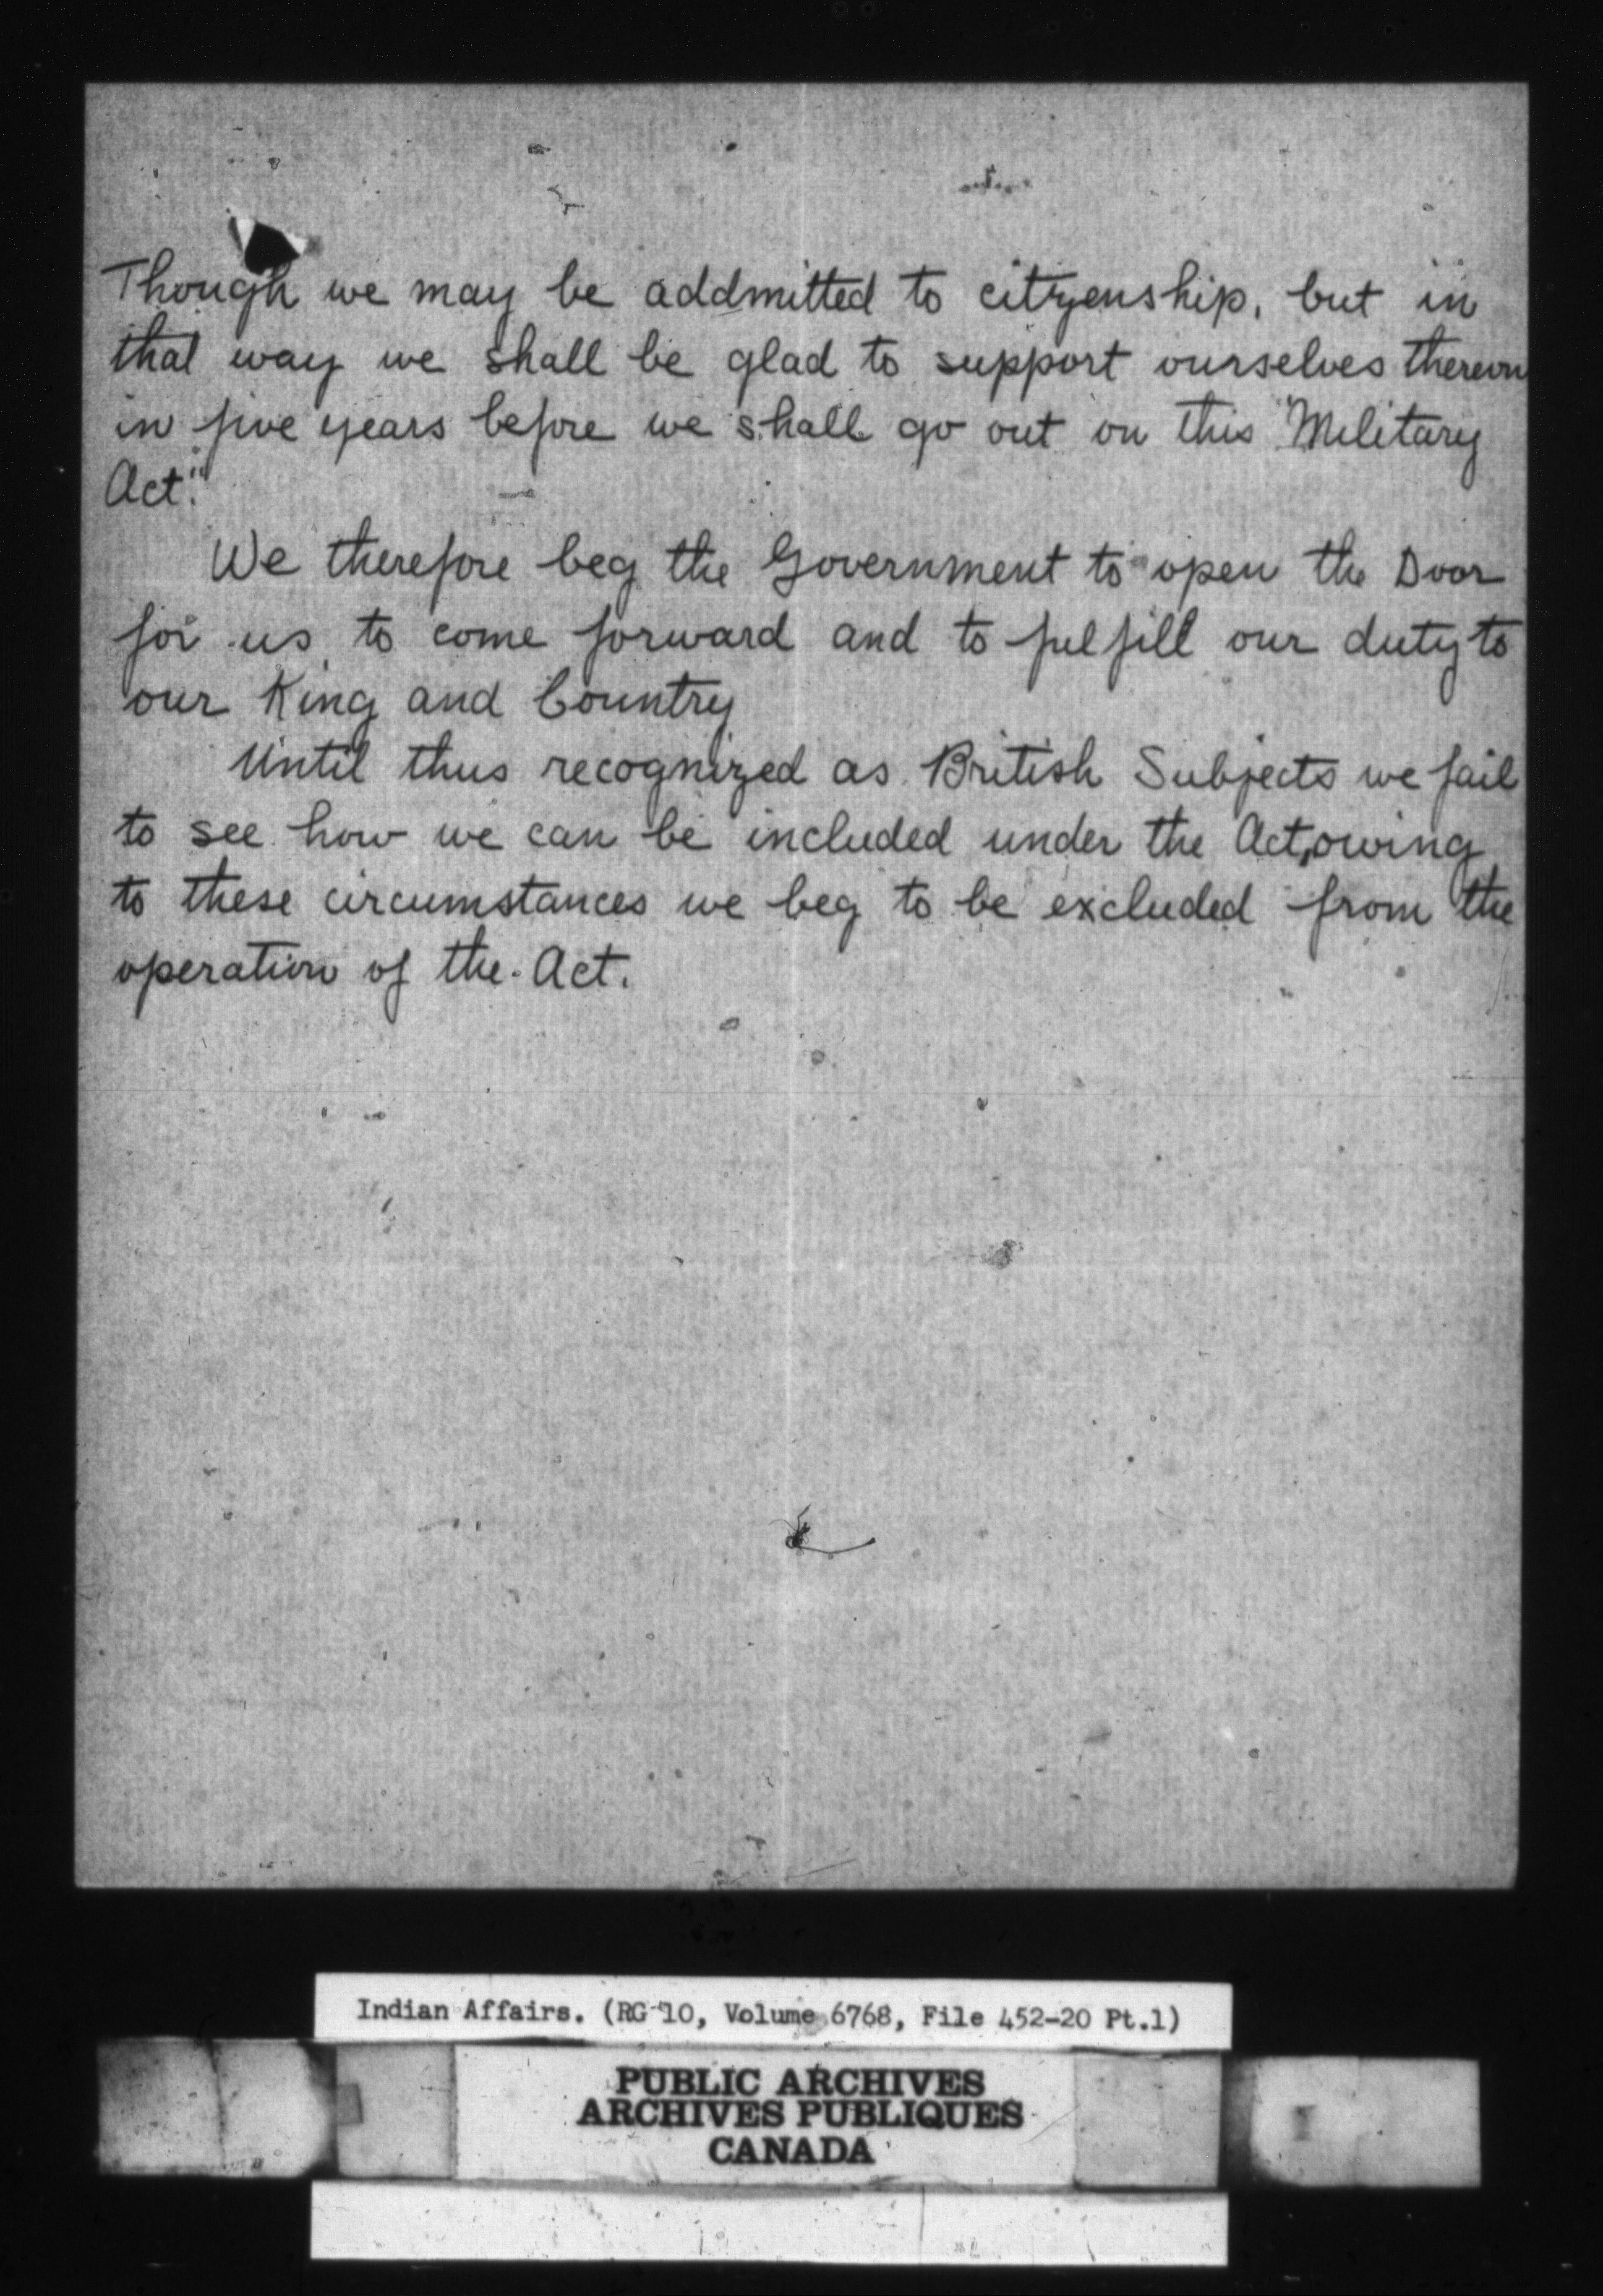 Though we may be addmitted to citizenship, but in
that way we shall be glad to support ourselves thereon
in five years before we shall go out on this "Military
Act."
We therefore beg the Government to open the Door
for us to come forward and to fulfill our duty to
our King and Country
Until thus recognized as British Subjects we fail
to see how we can be included under the Act, owing
to these circumstances we beg to be excluded from the
operation of the Act.
Indian Affairs. (RG 10, Volume 6768, File 452-20 Pt.1)
PUBLIC ARCHIVES
ARCHIVES PUBLIQUES
CANADA